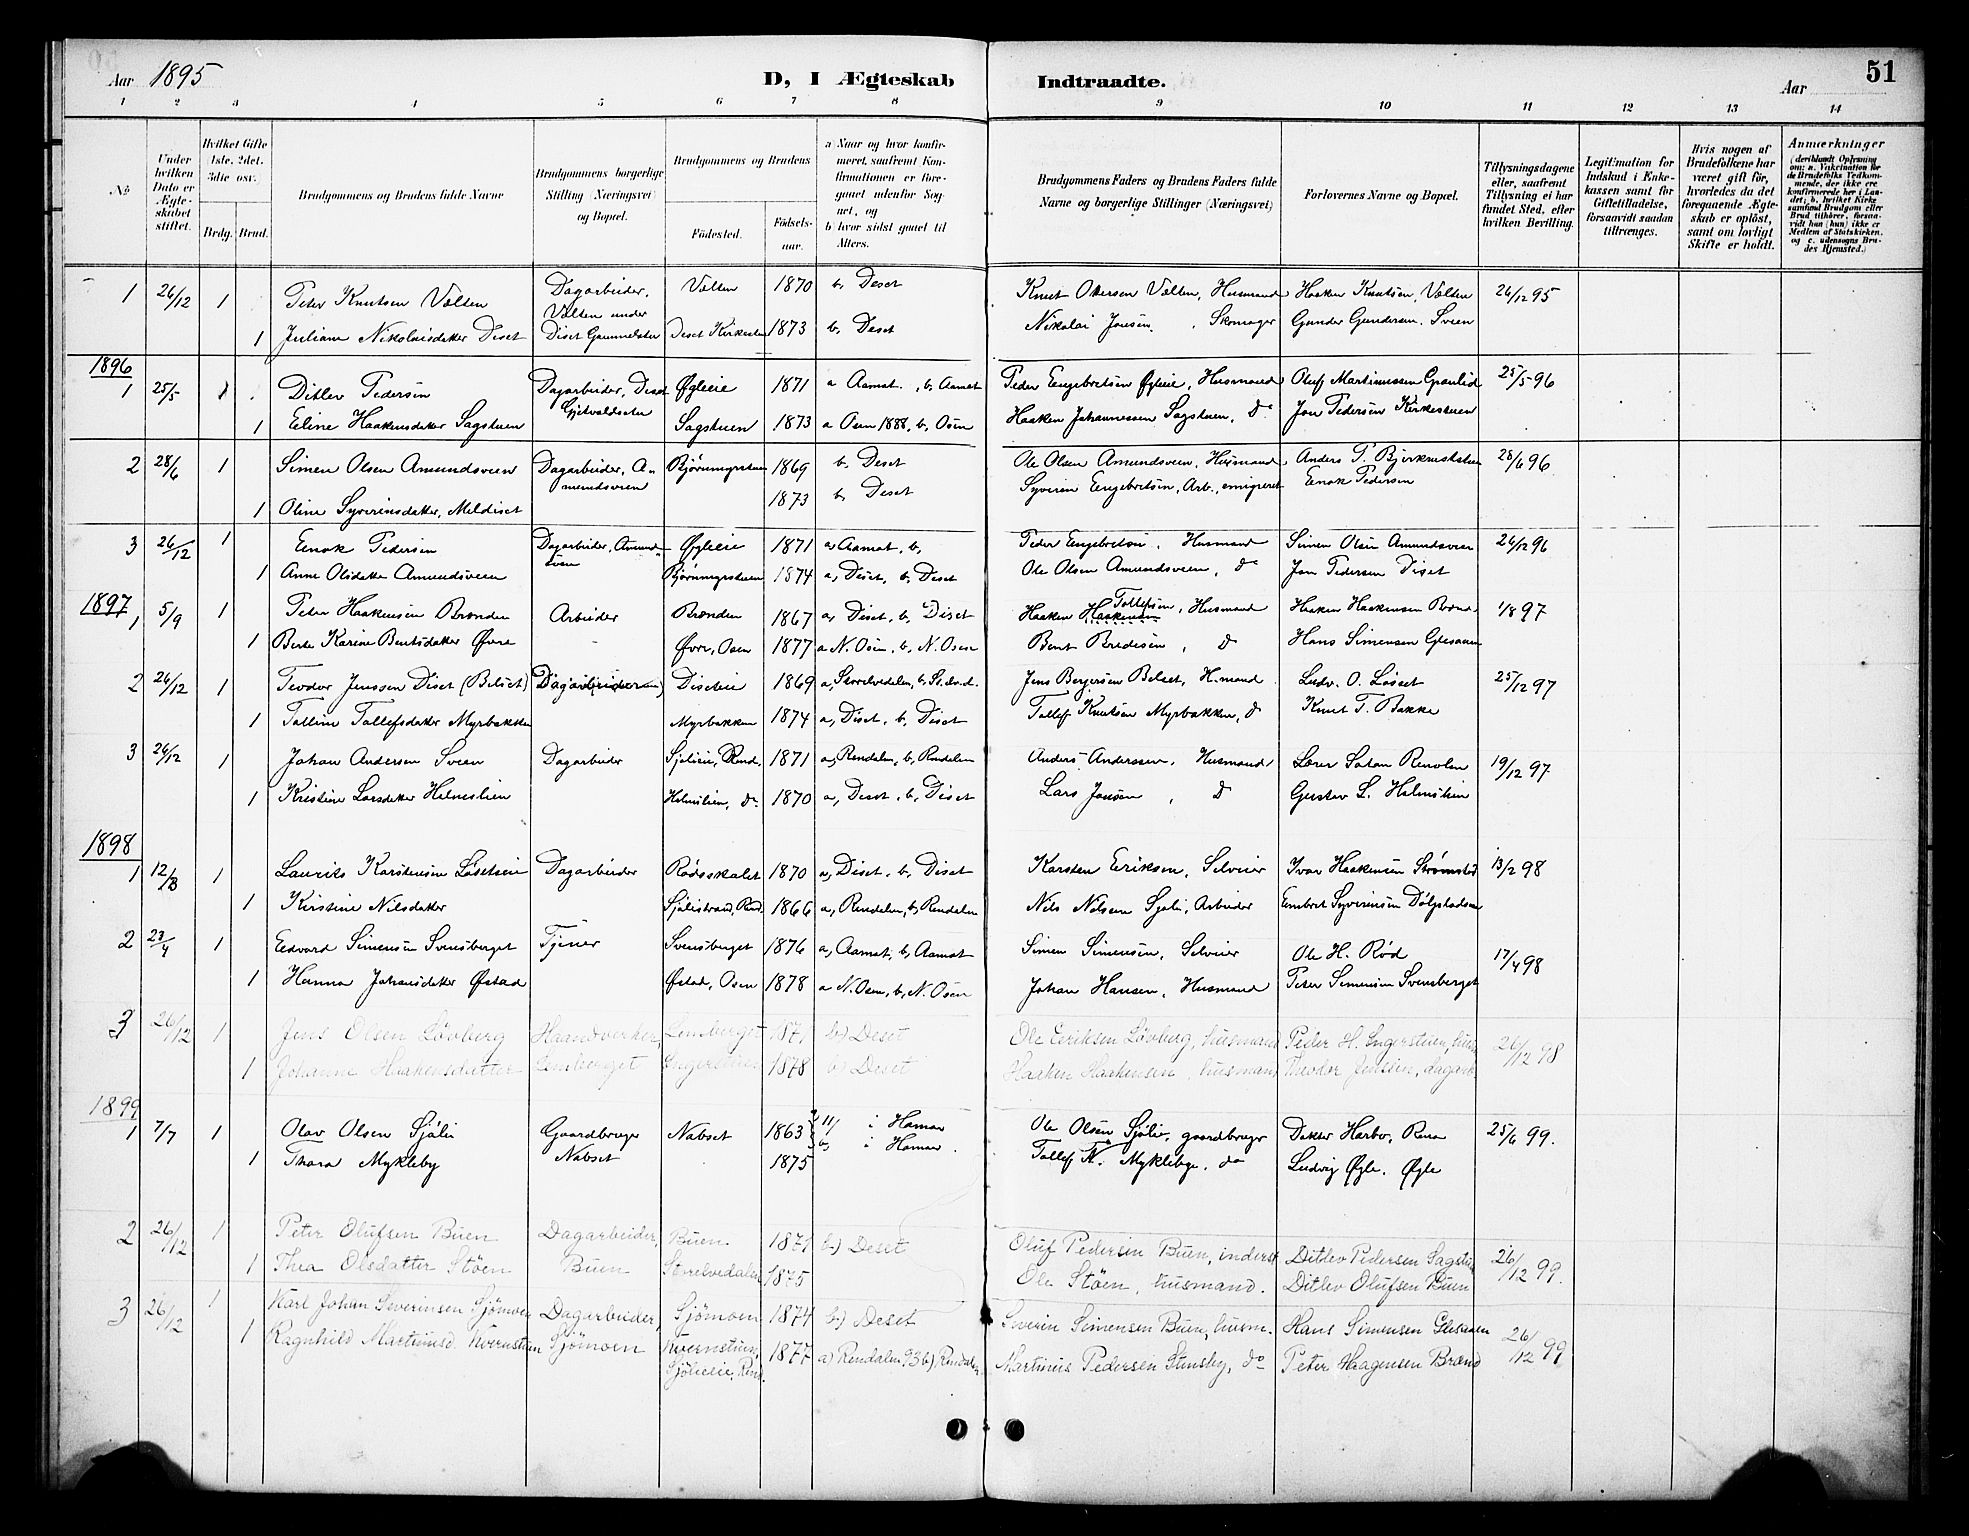 Aar 1895 D, I Ægteskab Indtraadte. Aar 51
1 2 3 4 5 6 7 8 9 10 11 12 13 14
No.
Under hvilken Dato er Ægteskabet stiftet.
Hvilket Gifte 1ste, 2det, 3die osv.
Brdg. Brud.
Brudgommens og Brudens fulde Navne
Brudgommens borgerlige Stilling (Næringsvei) og Bopæl.
Brudgommens og Brudens
Fødested. Fødselsaar.
a Naar og hvor konfirmeret, saafremt Konfirmationen er foregaaet udenfor Sognet, og
b hvor sidst gaaet til Alters.
Brudgommens Faders og Brudens Faders fulde Navne og borgerlige Stillinger (Næringsvei)
Forlovernes Navne og Bopæl.
Tillysningsdagene eller, saafremt Tillysning ei har fundet Sted, efter hvilken Bevilling.
Legitimation for Indskud i Enkekassen samt for Giftetilladelse, forsaavidt saadan tiltrænges.
Hvis nogen af Brudefolkene har været gift før, hvorledes da det foregaaende Ægteskab er opløst, samt om lovligt Skifte er holdt.
Anmærkninger
(deriblandt Oplysning om: a. Vakcination for de Brudefolks Vedkommende, der ikke ere konfirmerede her i Landet; b. hvilket Kirkesamfund Brudgom eller Brud tilhører, forsaavidt han (hun) ikke er Medlem af Statskirken, og c. udensogns Brudes Hjemsted.)
1 26/12 1 Peter Knutsen Volten Dagarbeider, Volten 1870 b, Deset Knut Ottersen Volten, Husmand Haaken Knutsen, Volten 26/12 95
Volten under
1 Juliane Nikolaisdatter Diset Diset Gammelseter Deset Kirkestuen 1873 b, Deset Nikolai Jonsen, Skomager Gunder Gundersen, Sveen
1896
1 25/5 1 Ditlev Pedersen Dagarbeider, Deset Øgleie 1871 a Aamot, b, Aamot Peder Engebretsen Øgleie, Husmand Oluf Martinussen Granlid 25/5 96
1 Eline Haakensdatter Sagstuen Sagstuen 1873 a Osen 1888, b, Osen Haaken Johannessen Sagstuen, do Jon Pedersen Kirkestuen
2 28/6 1 Simen Olsen Amundsveen Dagarbeider, Amundsveen Bjørnmyrstuen 1869 b, Deset Ole Olsen Amundsveen, Husmand Anders P. 28/6 96
1 Oline Syverinsdatter, Meldiset 1873 b, Deset Syverin Engebretsen, Arb., emigreret Enok Pedersen
3 26/12 1 Enok Pedersen Dagarbeider, Amundsveen Øgleie 1871 a, Aamot, b, Peder Engebretsen, Husmand Simen Olsen Amundsveen 26/12 96
1 Anne Olsdatter Amundsveen Bjørnmyrstuen 1874 a, Diset, b, Deset Ole Olsen Amundsveen, do Jon Pedersen Diset
1897
1 5/9 1 Peter Haakensen Brænden Arbeider Brænden 1867 a, Diset, b, Diset Haaken Tollefsen, Husmand Haaken Haakensen 1/8 97
1 Berte Karine Berntsdatter Øvre Øvre, Osen 1877 a N. Osen, b, N. Osen Bernt Bredesen, do Hans Simensen Glesaaen
2 26/12 1 Teodor Jenssen Diset (Belset) Diseteie 1869 a, Storelvedalen, b, St.elv.d. Jens Bergersen Belset, H.mand Ludv. O. Løsset 25/12 97
1 Tolline Tollefsdatter Myrbakken Myrbakken 1874 a, Diset, b, Diset Tollef Knutsen Myrbakken, do Knut T. Bakke
3 26/12 1 Johan Andersen Sveen Dagarbeider Sjølieie, Rend. 1871 a, Rendalen, b, Rendalen Anders Anderssen, Husmand 19/12 97
1 Kristine Larsdatter Helmslien Helmslien, do 1870 a, Deset, b, Diset Lars Jonsen, do Gustav L. Helmslien
1898
1 12/3 1 Laurits Karstensen Løsetseie Dagarbeider Rødsskalet 1870 a, Diset, b, Diset Karsten Eriksen, Selveier Ivar Haakensen Strømstad 13/2 98
1 Kirstine Nilsdatter Sjølistrand, Rend. 1866 a, Rendalen, b, Rendalen Nils Nilsen Sjøli, Arbeider Embret Syverinsen
2 23/4 1 Edvard Simensen Svensberget Tjener Svensberget 1876 a, Aamot, b, Aamot Simen Simensen, Selveier Ole H. Rød 17/4 98
1 Hanna Johansdatter Østad Østad, Osen 1878 a N. Osen, b, N. Osen Johan Hansen, Husmand Peter Simensen Svensberget
3 26/12 1 Jens Olsen Løvberg Haandverker Lemberget 1871 b) Deset Ole Eriksen Løvberg, husmand Peder H. Engerstuen, husm 26/12 98
1 Johanne Haakensdatter Lemberget 1878 b) Deset Haaken Haakensen, husmand Theodor Jenssen, dagarb
1899
1 7/7 1 Olav Olsen Sjøli Gaardbruger Nabset 1863 i Hamar Ole Olsen Sjølie, gaardbruger Dokter Harbo, Rena 25/6 99.
1 Thora Mykleby Nabset 1875 b, i Hamar. Tollef K. Myklebye, do Ludvig Øgle, Øgle
2 26/12 1 Peter Olufsen Buen Dagarbeider, Buen. 1871 b.) Deset Oluf Pedersen Buen, inderst Ditlev Pedersen Sagstu 26/12 99.
1 Thea Olsdatter Støen Buen Storelvedalen 1875 Ole Støen, husmand. Ditlev Olufsen Buen
3 26/12 1 Karl Johan Severinsen Sjømoen Dagarbeider, Sjømoen 1874 b.) Deset Severin Simensen Buen, husm. Hans Simensen Glesaaen 26/12 99
1 Ragnhild Martinusd. Kvernstuen Sjømoen Kvernstuen, Sjølieie, Rend. 1877 a) Rendalen 93 b) Rendalen Martinus Pedersen Stensby, do Peter Haagensen Brænd